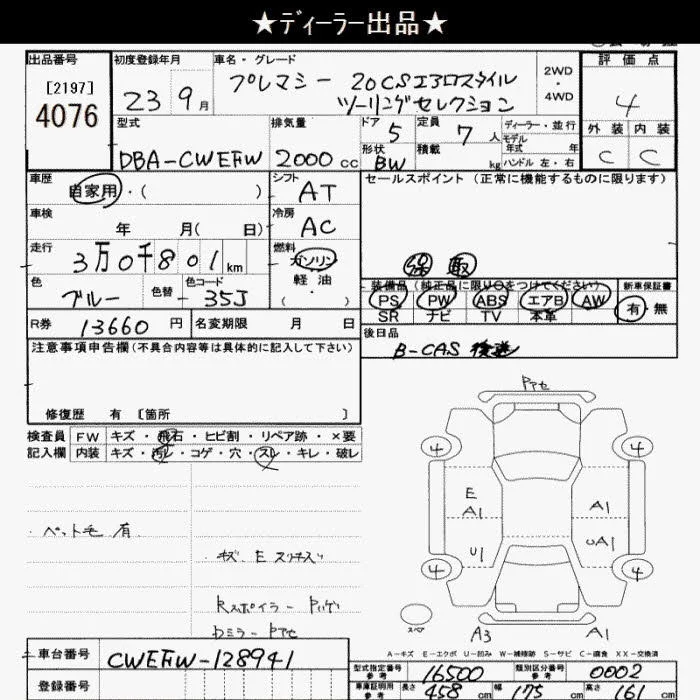 ★ディーラー出品★
出品番号 初度登録年月 車名・グレード 評価点
[2197] 4076 23 9月 プレマシー 20CSエアロスタイル 2WD・4WD 4
ツーリングセレクション
型式 排気量 ドア 定員 ディーラー・並行 外装 内装
DBA-CWEFW 2000cc 5 7人 モデル年式 年 C C
形状 BW 積載 kg ハンドル 左・右
車歴 自家用・( ) シフト AT セールスポイント (正常に機能するものに限ります)
車検 年 月( 日) 冷房 AC
走行 3万0千801km 燃料 ガソリン 保 取
軽油・( )
色 ブルー 色替 色コード 35J 装備品(純正品に限り○をつけてください) 新車保証書
PS PW ABS エアB AW 有・無
SR ナビ TV 本革
R券 13660円 名変期限 月 日 後日品
B-CAS 後送
注意事項申告欄(不具合内容等は具体的に記入して下さい)
修復歴 有 〔箇所 〕
検査員 FW キズ・飛石・ヒビ割・リペア跡・×要
記入欄 内装 キズ・汚レ・コゲ・穴・スレ・キレ・破レ
・ペット毛 有
Rスポイラー
Dミラー Pアセ
Pアセ
4 4
E
A1 A1
U1 UA1
4 4
スペア
A3 A1
A-キズ E-エクボ U-凹み W-補修跡 S-サビ C-腐食 XX-交換済
車台番号 CWEFW-128941
型式指定番号 参考 16500 類別区分番号 参考 0002
登録番号
車庫証明用 参考 長さ 458cm 幅 175cm 高さ 161cm